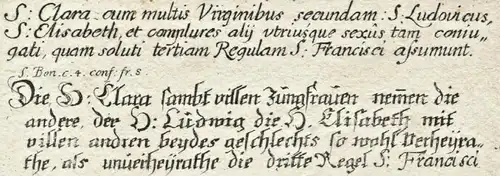 S: Clara cum multis Virginibus secundam: S: Ludovicus,
S: Elisabeth, et complures alij utriusque sexûs tam coniu-
gati, quam soluti tertiam Regulam S: Francisci assumunt.
S. Bon. c. 4. conf. fr. 8.
Die H: Clara sambt villen Jungfrauen nemen die
andere, der H: Ludwig die H. Elisabeth mit
villen andren beydes geschlechts so wohl Verheyra-
the, als unveiheyrathe die dritte Regel S: Francisci